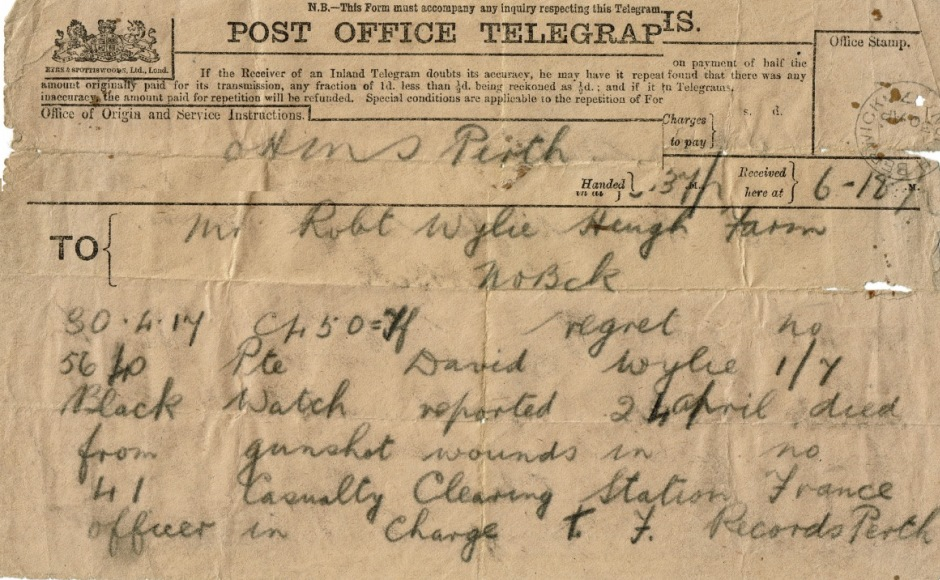 N.B.—This Form must accompany any inquiry respecting this Telegram.
POST OFFICE TELEGRAP IS.
EYRE & SPOTTISWOODE, Ltd., Lond.
Office Stamp.
If the Receiver of an Inland Telegram doubts its accuracy, he may have it repeat on payment of half the
amount originally paid for its transmission, any fraction of 1d. less than ½d. being reckoned as ½d.; and if it found that there was any
inaccuracy, the amount paid for repetition will be refunded. Special conditions are applicable to the repetition of For n Telegrams.
Office of Origin and Service Instructions.
Charges to pay
s. d.
OHMS Perth
Handed in at
Received here at 6-18
TO
Mr Robt Wylie Heugh Farm
NoBck
30.4.17 regret no
Pte David Wylie 1/7
Black Watch reported 24 april died
from gunshot wounds in no
41 Casualty Clearing Station France
officer in Charge T. F. Records Perth